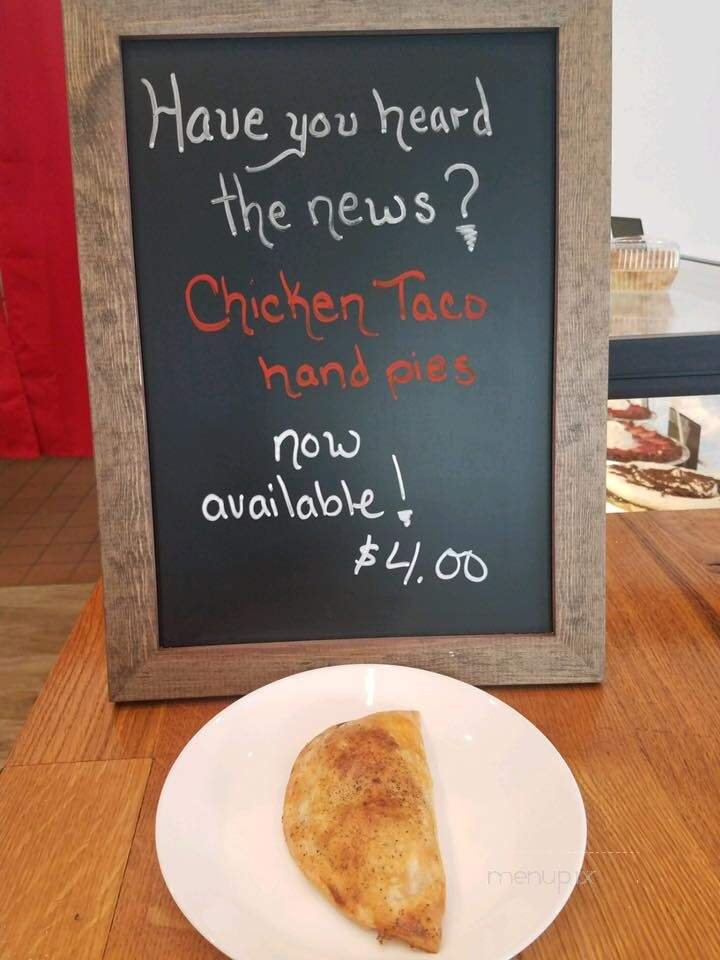 Have you heard
the news?
Chicken Taco
hand pies
now
available!
$4.00
menupix